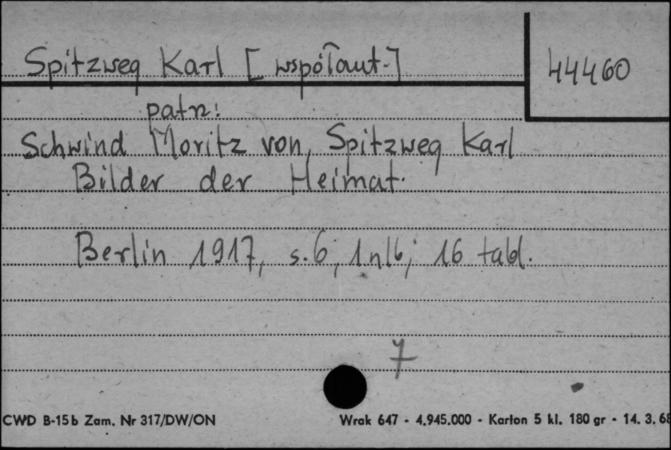 Spitzweg Karl [współaut.]
44460
patrz:
Schwind Moritz von, Spitzweg Karl
Bilder der Heimat.
Berlin 1917, s. 6, 1 nlb, 16 tabl.
7
CWD B-15b Zam. Nr 317/DW/ON
Wrak 647 - 4.945.000 - Karton 5 kl. 180 gr - 14. 3. 68